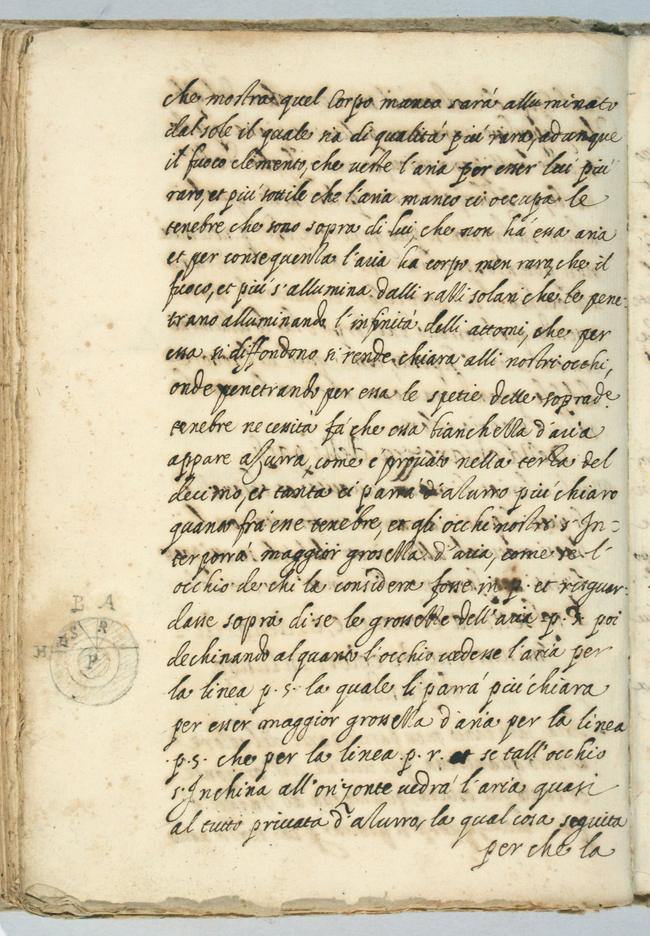 che mostra quel corpo manco sará alluminato
dal sole il quale sia di qualitá piú rara, adunque
il fuoco elemento, che veste l'aria per esser lui piú
raro, et piú sottile che l'aria manco ci occupa le
tenebre che sono sopra di lui, che non há essa aria
et per consequenza l'aria ha corpo men raro, che il
fuoco, et piú s'allumina dalli razzi solari che le pene-
trano alluminando l'infinitá delli attomi, che per
essa si diffondono si rende chiara alli nostri occhi,
onde penetrando per essa le spetie delle sopradᵉ
tenebre necessitá fá che essa bianchezza d'aria
appare azurra, come é provato nella terza del
decimo, et tanta ci parrá d'azurro piú chiaro
quanto frá ene tenebre, et gli occhi nostri s'In=
terporrá maggior grossezza d'aria, come se l'
occhio de chi la considera fosse in p. et risguar-
dasse sopra di se le grossezze dell'aria p. r. poi
dechinando alquanto l'occhio vedesse l'aria per
la linea p. s. la quale li parrá piú chiara
per esser maggior grossezza d'aria per la linea
.p. s. che per la linea p. r. et se tall'occhio
s'Inchina all'orizonte vedrá l'aria quasi
al tutto privata d'azurro, la qual cosa seguita
per che la
B A
S R
H
P